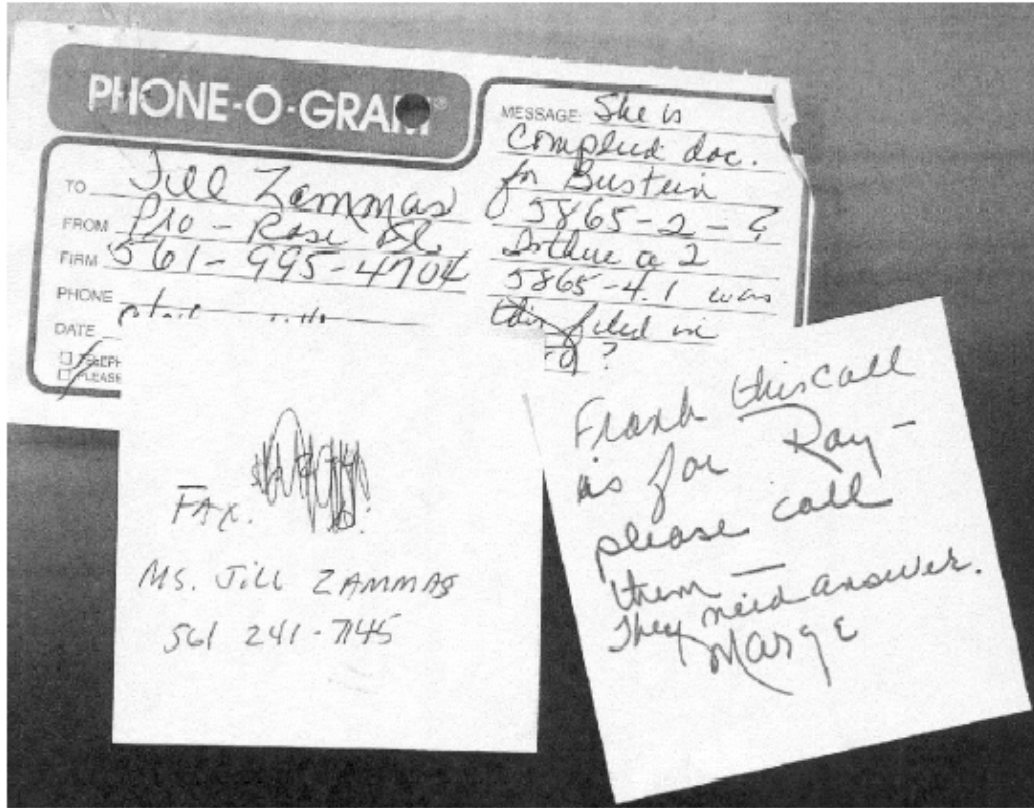 PHONE-O-GRAM®
TO Jill Zammas
FROM Pro - Rose
FIRM 561-995-4704
PHONE
DATE
PLEASE
MESSAGE: She is
doc.
for
5865-2-?
a 2
5865-4.1 was
this filed in
?
FAX:
MS. JILL ZAMMAS
561 241-7145
Frank this call
is for Ray -
please call
them —
They need answer.
Marge